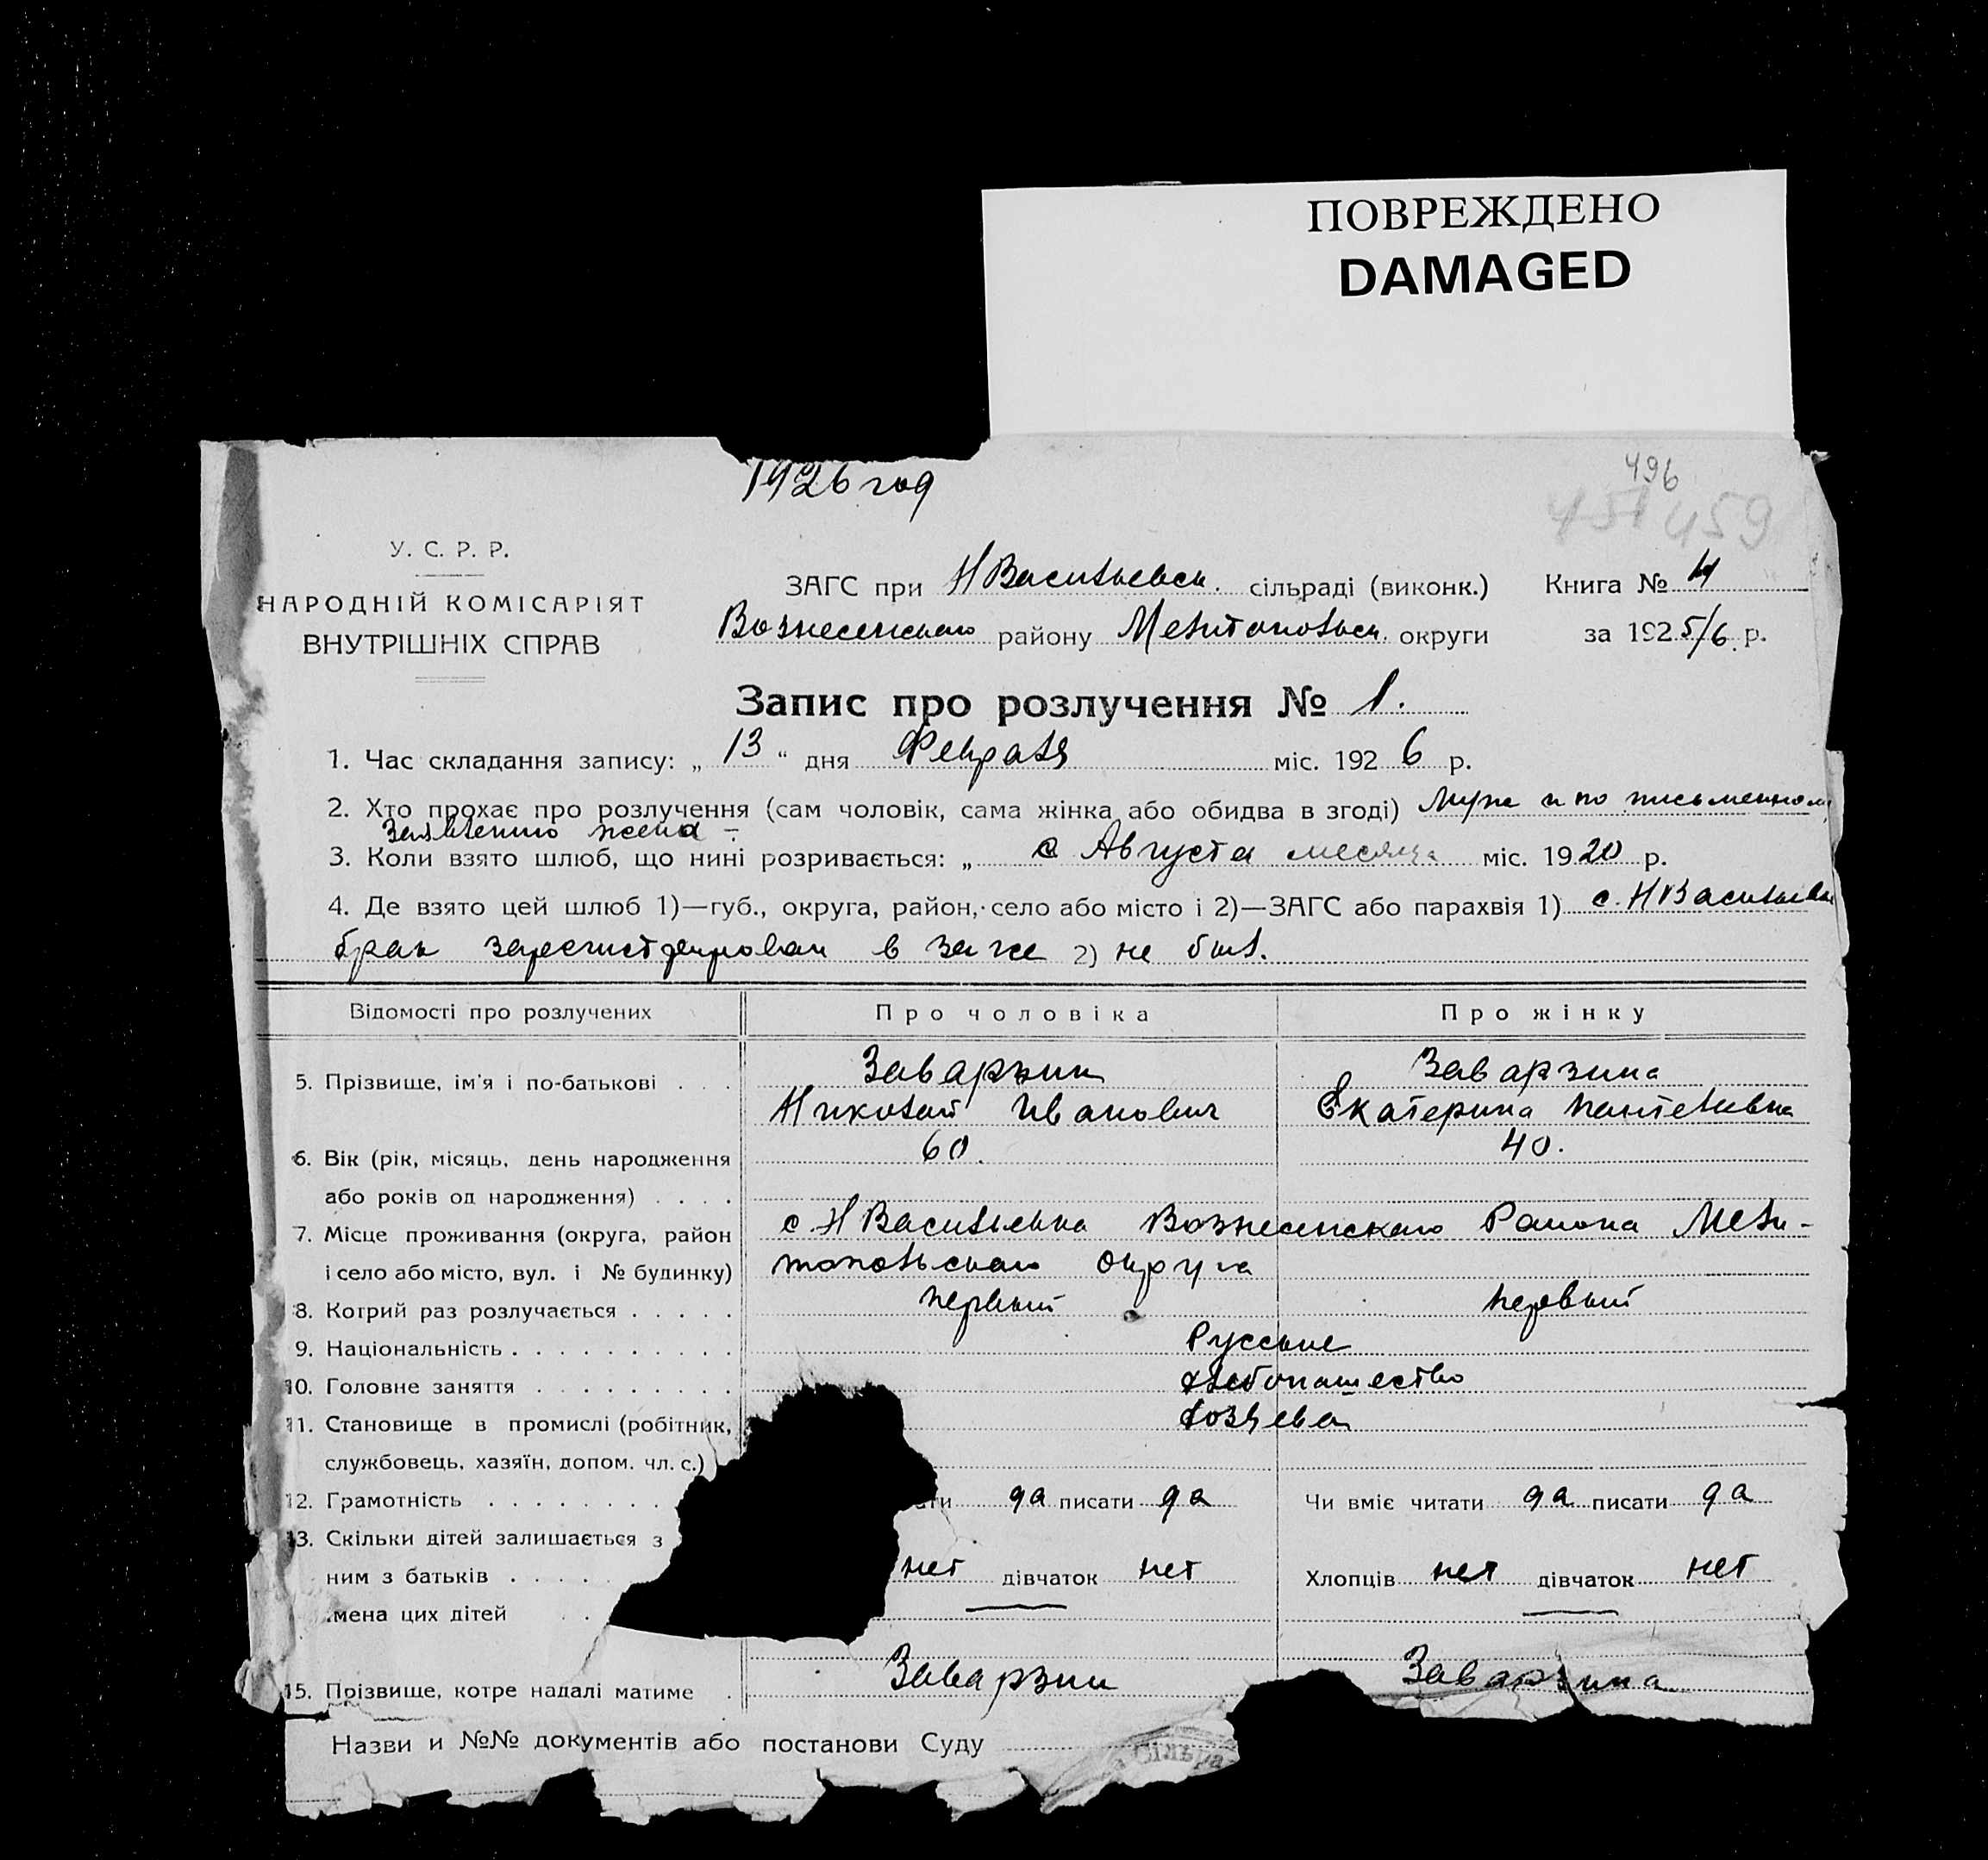 ПОВРЕЖДЕНО
DAMAGED
1926 год
496
457 459
У. С. Р. Р.
НАРОДНІЙ КОМІСАРІЯТ
ВНУТРІШНІХ СПРАВ
ЗАГС при НВасильевск. сільраді (виконк.) Книга № 4
Вознесенскаго району Мелитопольск. округи за 1925/6 р.
Запис про розлучення № 1.
1. Час складання запису: „ 13 “ дня Февраля міс. 1926 р.
2. Хто прохає про розлучення (сам чоловік, сама жінка або обидва в згоді) Муж и по письменном
Заявлению жена
3. Коли взято шлюб, що нині розривається: „ с Августа месяца міс. 1920 р.
4. Де взято цей шлюб 1)—губ., округа, район, село або місто і 2)—ЗАГС або парахвія 1) с. НВасильевка
брак зарегистрирован в загсе 2) не был.
Відомості про розлучених Про чоловіка Про жінку
5. Прізвище, ім'я і по-батькові . . . Заварзин Заварзина
Николай Иванович Екатерина Пантеливна
6. Вік (рік, місяць, день народження 60. 40.
або років од народження) . . . .
7. Місце проживання (округа, район с. НВасильевка Вознесенскаго Района Мели-
і село або місто, вул. і № будинку) топольскаго Округа
8. Котрий раз розлучається . . . . . первый первый
9. Національність . . . . . . . . . . Русские
10. Головне заняття . . . . . . . . . хлебопашество
11. Становище в промислі (робітник,
службовець, хазяїн, допом. чл. с.)
12. Грамотність . . . . . . . . ати да писати да Чи вміє читати да писати да
13. Скільки дітей залишається з
ним з батьків . . . . . нет дівчаток нет Хлопців нет дівчаток нет
імена цих дітей . .
15. Прізвище, котре надалі матиме . Заварзин Заварзина
Назви и №№ документів або постанови Суду
Сільра